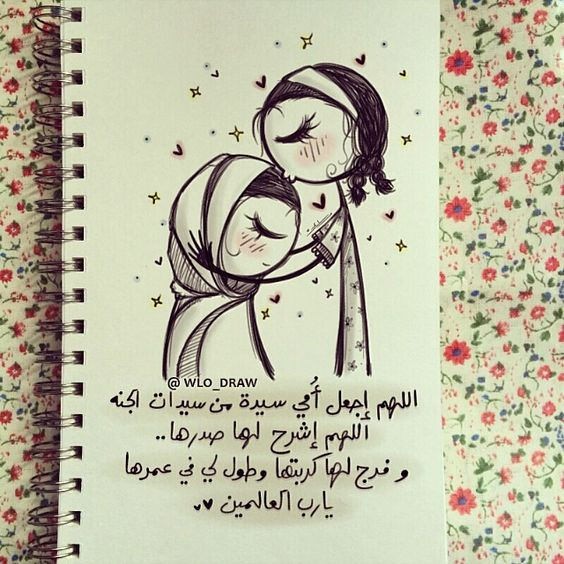 @ WLO_DRAW
اللهم إجعل أُمي سيدة من سيدات الجنه
اللهم إشرح لها صدرها..
و فرج لها كربتها وطول لي في عمرها
يارب العالمين